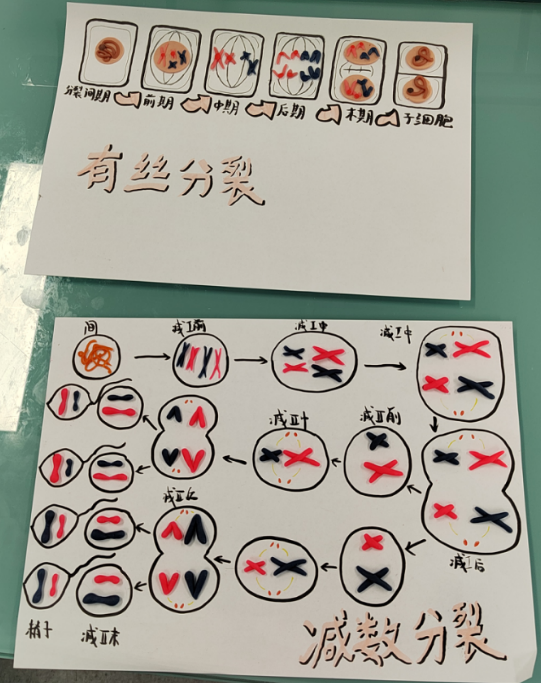 分裂间期 前期 中期 后期 末期 子细胞
有丝分裂
间 减I前 减I中 减I中
减II中 减II前
减II后 减I后
精子 减II末
减数分裂